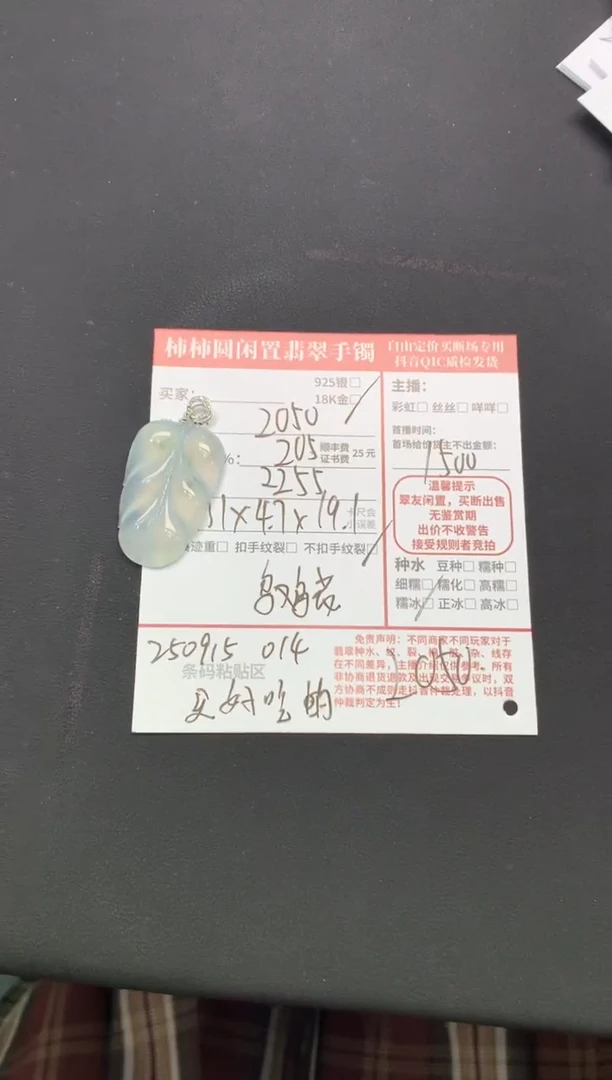 柿柿圆闲置翡翠手镯
自由定价买断场专用
抖音QIC质检发货
买家:
925银□
18K金□
2050
%:
205
顺丰费
证书费
25元
2255
31×4.7×19.1
卡尺会
小误差
迹重□ 扣手纹裂□ 不扣手纹裂□
250915 014
条码粘贴区
买好吃的
主播:
彩虹□ 丝丝□ 咩咩□
首播时间:
首场给价货主不出金额:
1500
温馨提示
翠友闲置,买断出售
无鉴赏期
出价不收警告
接受规则者竞拍
种水 豆种□ 糯种□
细糯□ 糯化□ 高糯□
糯冰□ 正冰□ 高冰□
免责声明:不同商家不同玩家对于
翡翠种水、纹、裂、
杂、线存
在不同差异,主播介绍仅供参考。所有
非协商退货退款及出现交易争议时,双
方协商不成则走抖音仲裁处理,以抖音
仲裁判定为主!
2050